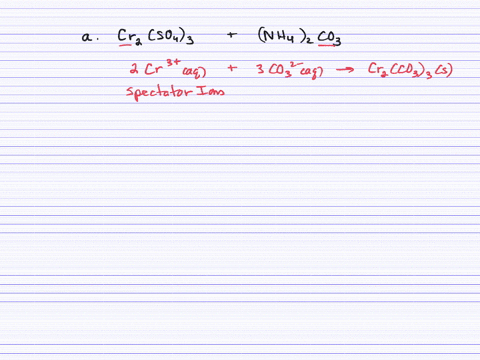 a. Cr₂(SO₄)₃ + (NH₄)₂CO₃
2Cr³⁺(aq) + 3CO₃²⁻(aq) → Cr₂(CO₃)₃(s)
Spectator Ions